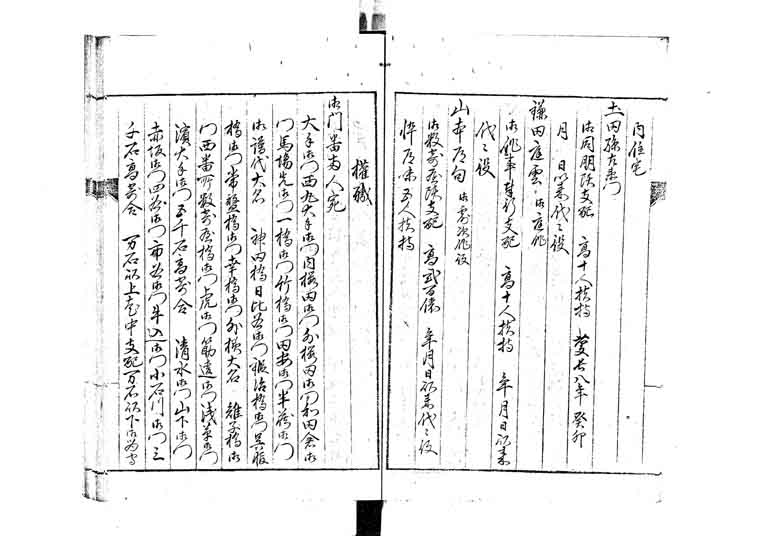 内住宅
土田孫左衛門
御同朋頭支配　高十人扶持　慶長八年癸卯
月　日以来代々役
鎌田庭雲　御庭作
御作事奉行支配　高十人扶持　年月日以来
代々役
山本道句　御露次作役
御数寄屋頭支配　高弐百俵　年月日以来代々役
悴道味五人扶持
權職
御門番両人宛
大手御門西丸大手御門内桜田御門外桜田御門和田倉御
門馬場先御門一橋御門竹橋御門田安御門半蔵御門
御譜代大名　神田橋日比谷御門鍛冶橋御門呉服
橋御門常盤橋御門幸橋御門外様大名　雉子橋御
門西番所数寄屋橋御門虎御門筋違御門浅草御門
濱大手御門五千石高寄合　清水御門山下御門
赤坂御門四谷御門市谷御門牛込御門小石川御門三
千石高寄合　万石以上老中支配万石以下御留守